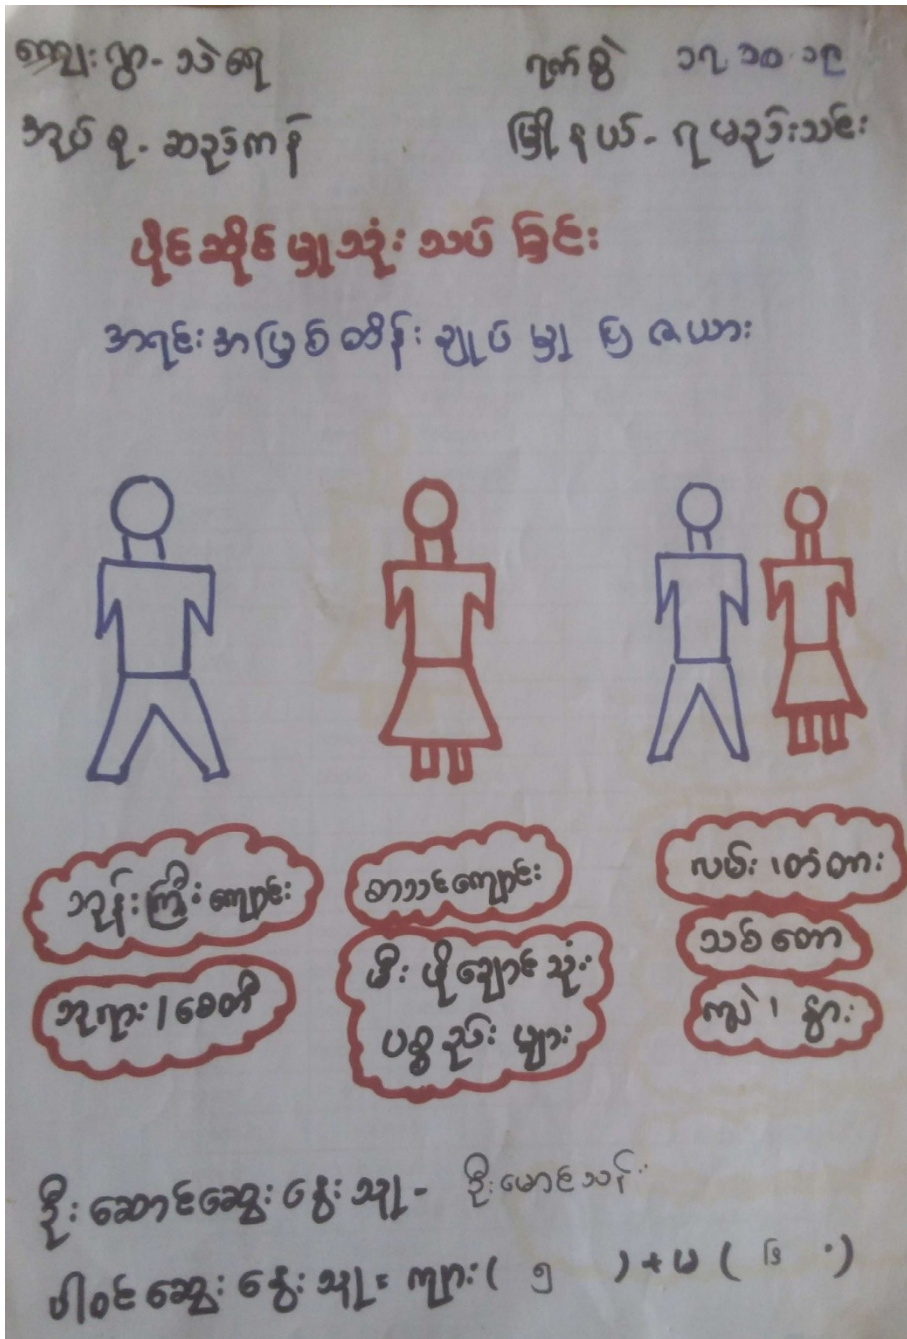 ကျေးရွာ - သဲရေ ရက်စွဲ ၁၇.၁၀.၁၉
အုပ်စု - ဆည်ကန် မြို့နယ် - ရမည်းသင်း
ပိုင်ဆိုင်မှုသုံးသပ်ခြင်း
အရင်းအမြစ်ထိန်းချုပ်မှုပြဇယား
ဘုန်းကြီးကျောင်း
ဘုရား၊စေတီ
စာသင်ကျောင်း
မီးဖိုချောင်သုံး
ပစ္စည်းများ
လမ်း၊တံတား
သစ်တော
ကျွဲ၊နွား
ဦးဆောင်ဆွေးနွေးသူ - ဦးမောင်သန်း
ပါဝင်ဆွေးနွေးသူ = ကျား ( ၅ ) + မ ( ၆ )